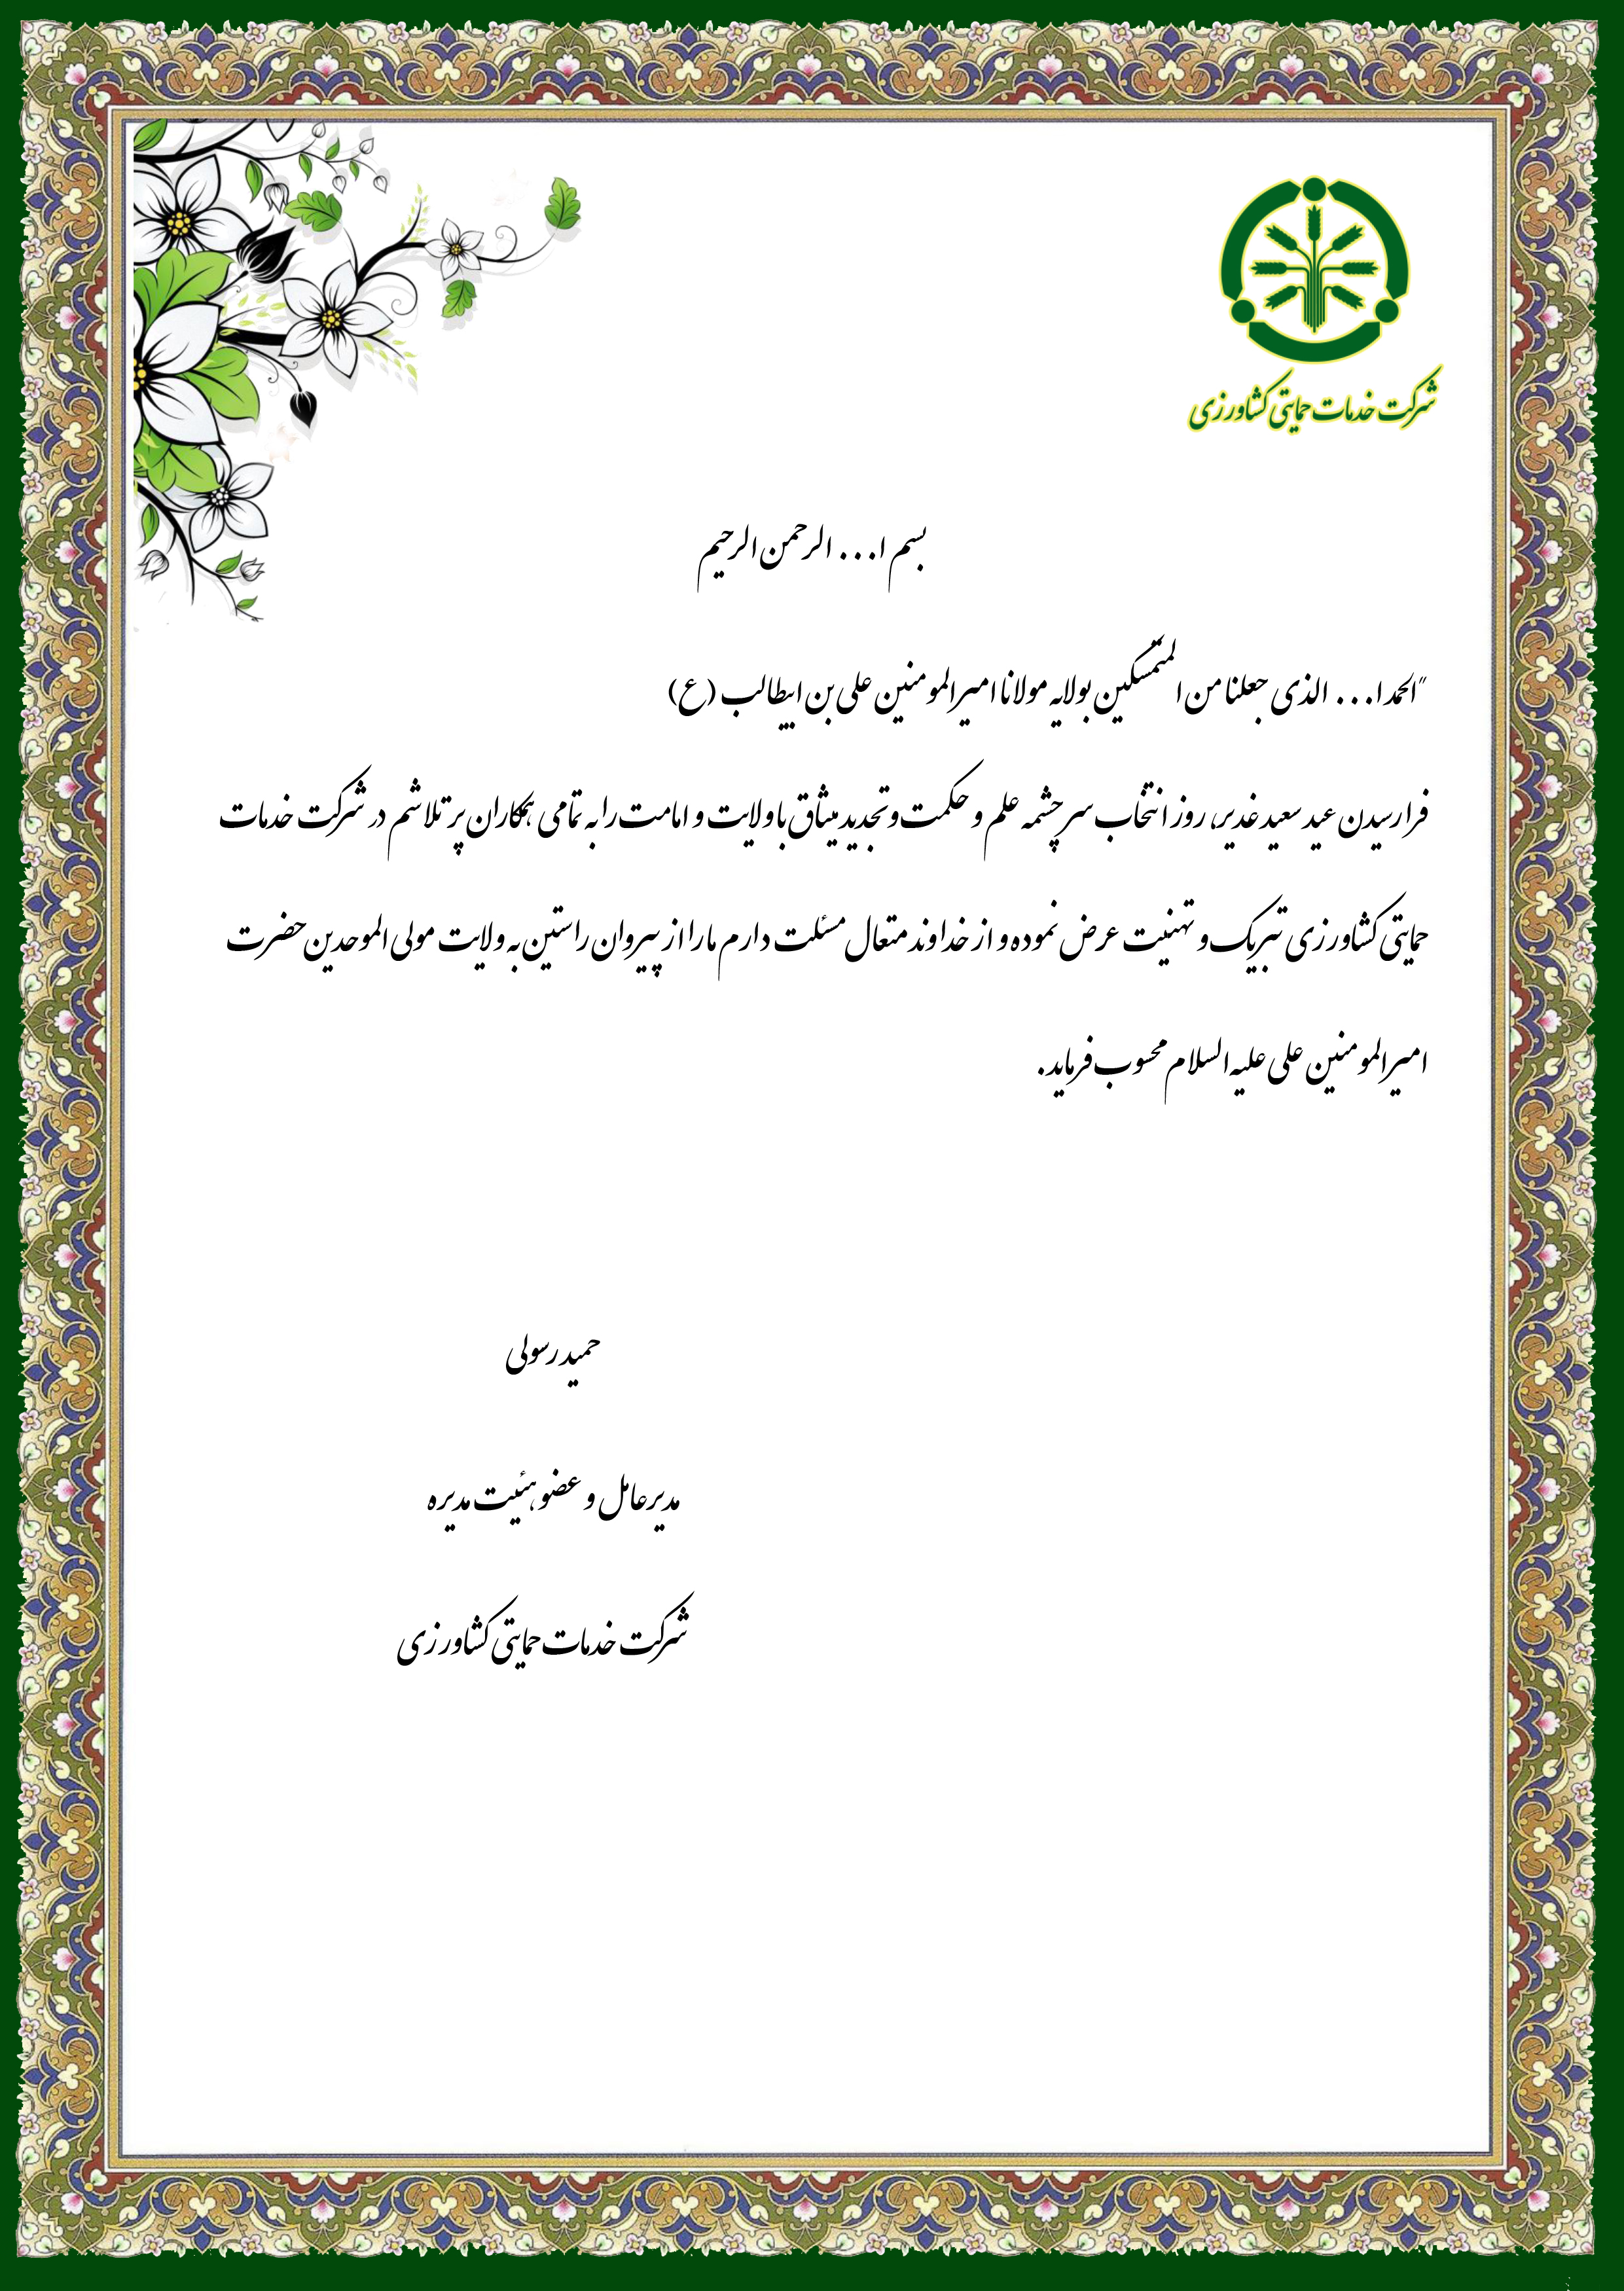 شرکت خدمات حمایتی کشاورزی
بسم ا... الرحمن الرحیم
"الحمدا... الذی جعلنا من المتمسکین بولایه مولانا امیرالمومنین علی بن ابیطالب (ع)
فرارسیدن عید سعید غدیر، روز انتخاب سرچشمه علم و حکمت و تجدید میثاق با ولایت و امامت را به تمامی همکاران پر تلاشم در شرکت خدمات
حمایتی کشاورزی تبریک و تهنیت عرض نموده و از خداوند متعال مسئلت دارم ما را از پیروان راستین به ولایت مولی الموحدین حضرت
امیرالمومنین علی علیه السلام محسوب فرماید.
حمید رسولی
مدیرعامل و عضو هئیت مدیره
شرکت خدمات حمایتی کشاورزی